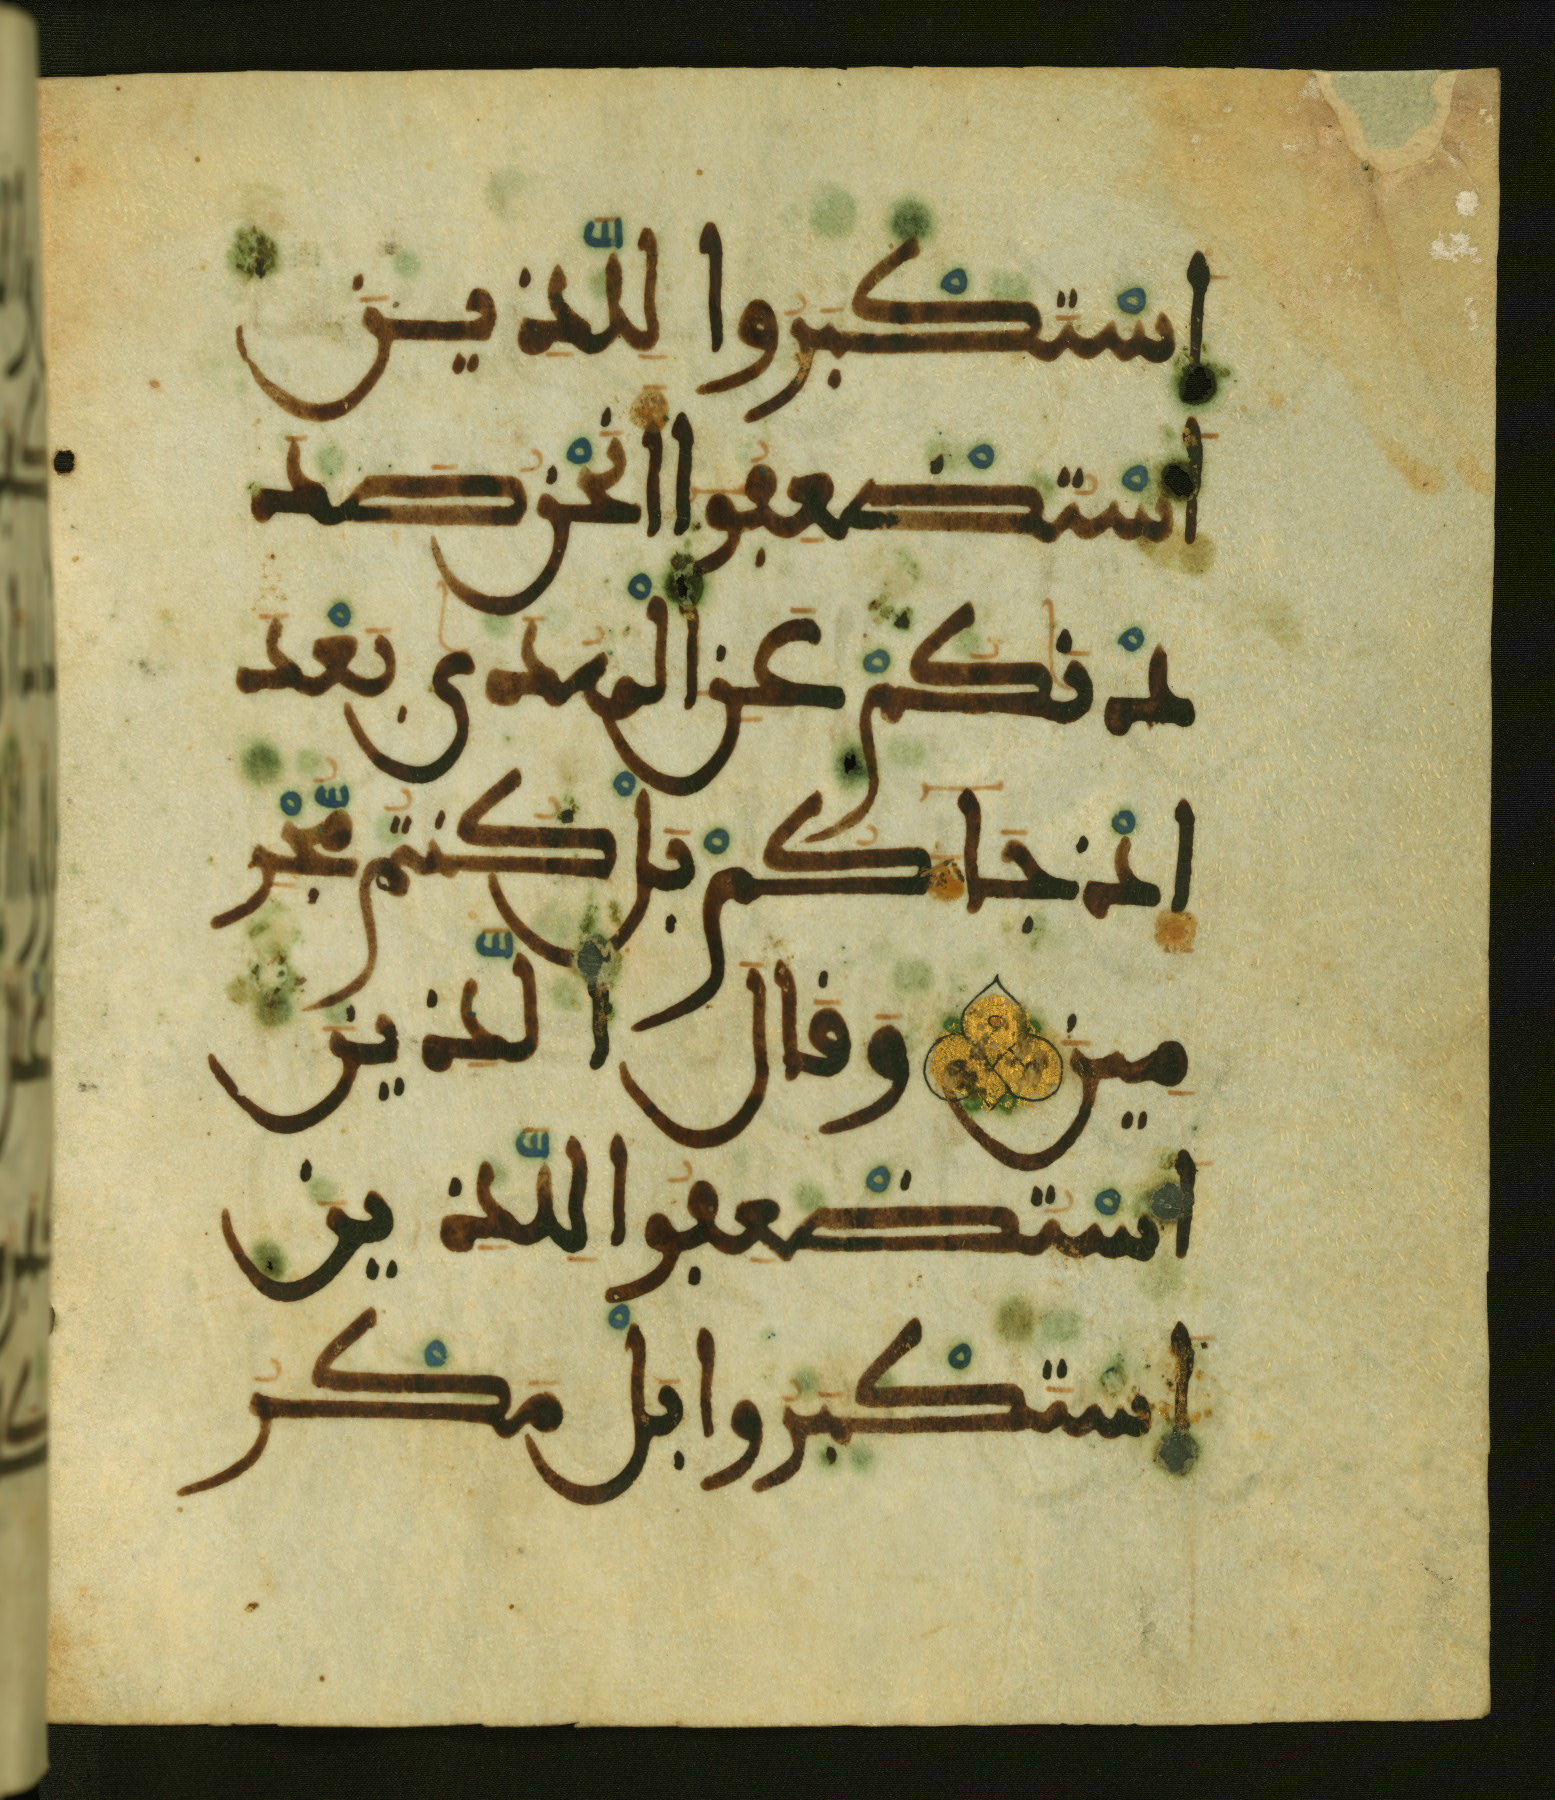 اسْتَكْبَرُوا لِلَّذِينَ
اسْتُضْعِفُوا انَحْنُ صَدَ
دْنَٰكُمْ عَنِ الْهُدَىٰ بَعْدَ
اذْ جَاكُمْ بَلْ كُنْتُمْ مُّجْرِ
مِينَ وَقَالَ الَّذِينَ
اسْتُضْعِفُوا لِلَّذِينَ
اسْتَكْبَرُوا بَلْ مَكْرُ